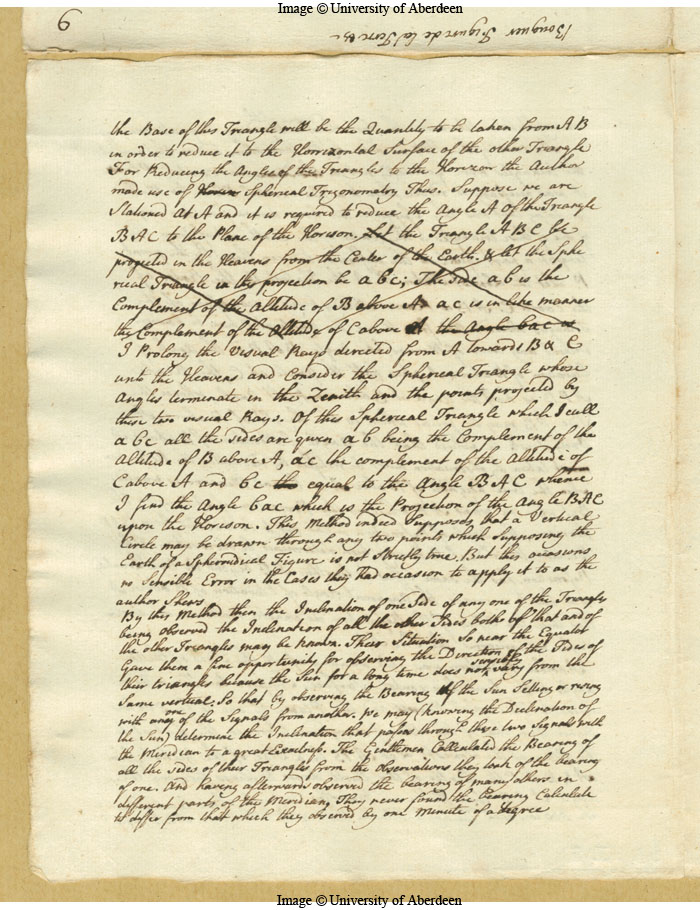 Image © University of Aberdeen
9
Bouguer Figure de la Terre &c
the Base of this Triangle will be the Quantity to be taken from AB
in order to reduce it to the Horrizontal Surface of the other Triangle
For Reducing the Angles of the Triangles to the Horizon the Author
made use of Spherical Trigonometry Thus. Suppose we are
Stationed At A and it is required to reduce the Angle A of the Triangle
BAC to the Plane of the Horison. Let the Triangle ABC be
projected in the Heavens from the Center of the Earth. & let the Sphe
rical Triangle in this projection be abc; The Side ab is the
Complement of the Altitude of B above A, ac is in like manner
the Complement of the Altitude of C above A the Angle bac is
I Prolong the Visual Rays directed from A towards B & C
unto the Heavens and Consider the Spherical Triangle whose
Angles terminate in the Zenith and the points projected by
these two visual Rays. Of this Spherical Triangle which I call
abc all the sides are given ab being the Complement of the
Altitude of B above A, ac the complement of the Altitude of
C above A and bc the equal to the Angle BAC whence
I find the Angle bac which is the Projection of the Angle BAC
upon the Horison. This Method indeed Supposes that a Vertical
Circle may be drawn through any two points which Supposing the
Earth of a Spheroidical Figure is not Strictly true. But this occasions
no Sensible Error in the Cases they had occasion to apply it to as the
author Shews
By this Method then the Inclination of one Side of any one of the Triangles
being observed the Inclination of all the other Sides bothe of that and of
the other Triangles may be known. Their Situation So near the Equator
Gave them a fine opportunity for observing the Direction of the Sides of
their triangles because the Sun for a long time does not sensibly vary from the
Same vertical. So that by observing the Bearing of the Sun Setting or rising
with any one of the Signals from another. we may (knowing the Declination of
the Sun) determine the Inclination that passes through these two Signals with
the Meridian to a great Exactness. The Gentlemen Callculated the Bearing of
all the Sides of their Triangles from the observations they took of the bearing
of one. And having afterwards observed the bearing of many others in
different parts of the Meridian, They never found the bearing Calculate
to differ from that which they observed by one Minute of a degree
Image © University of Aberdeen